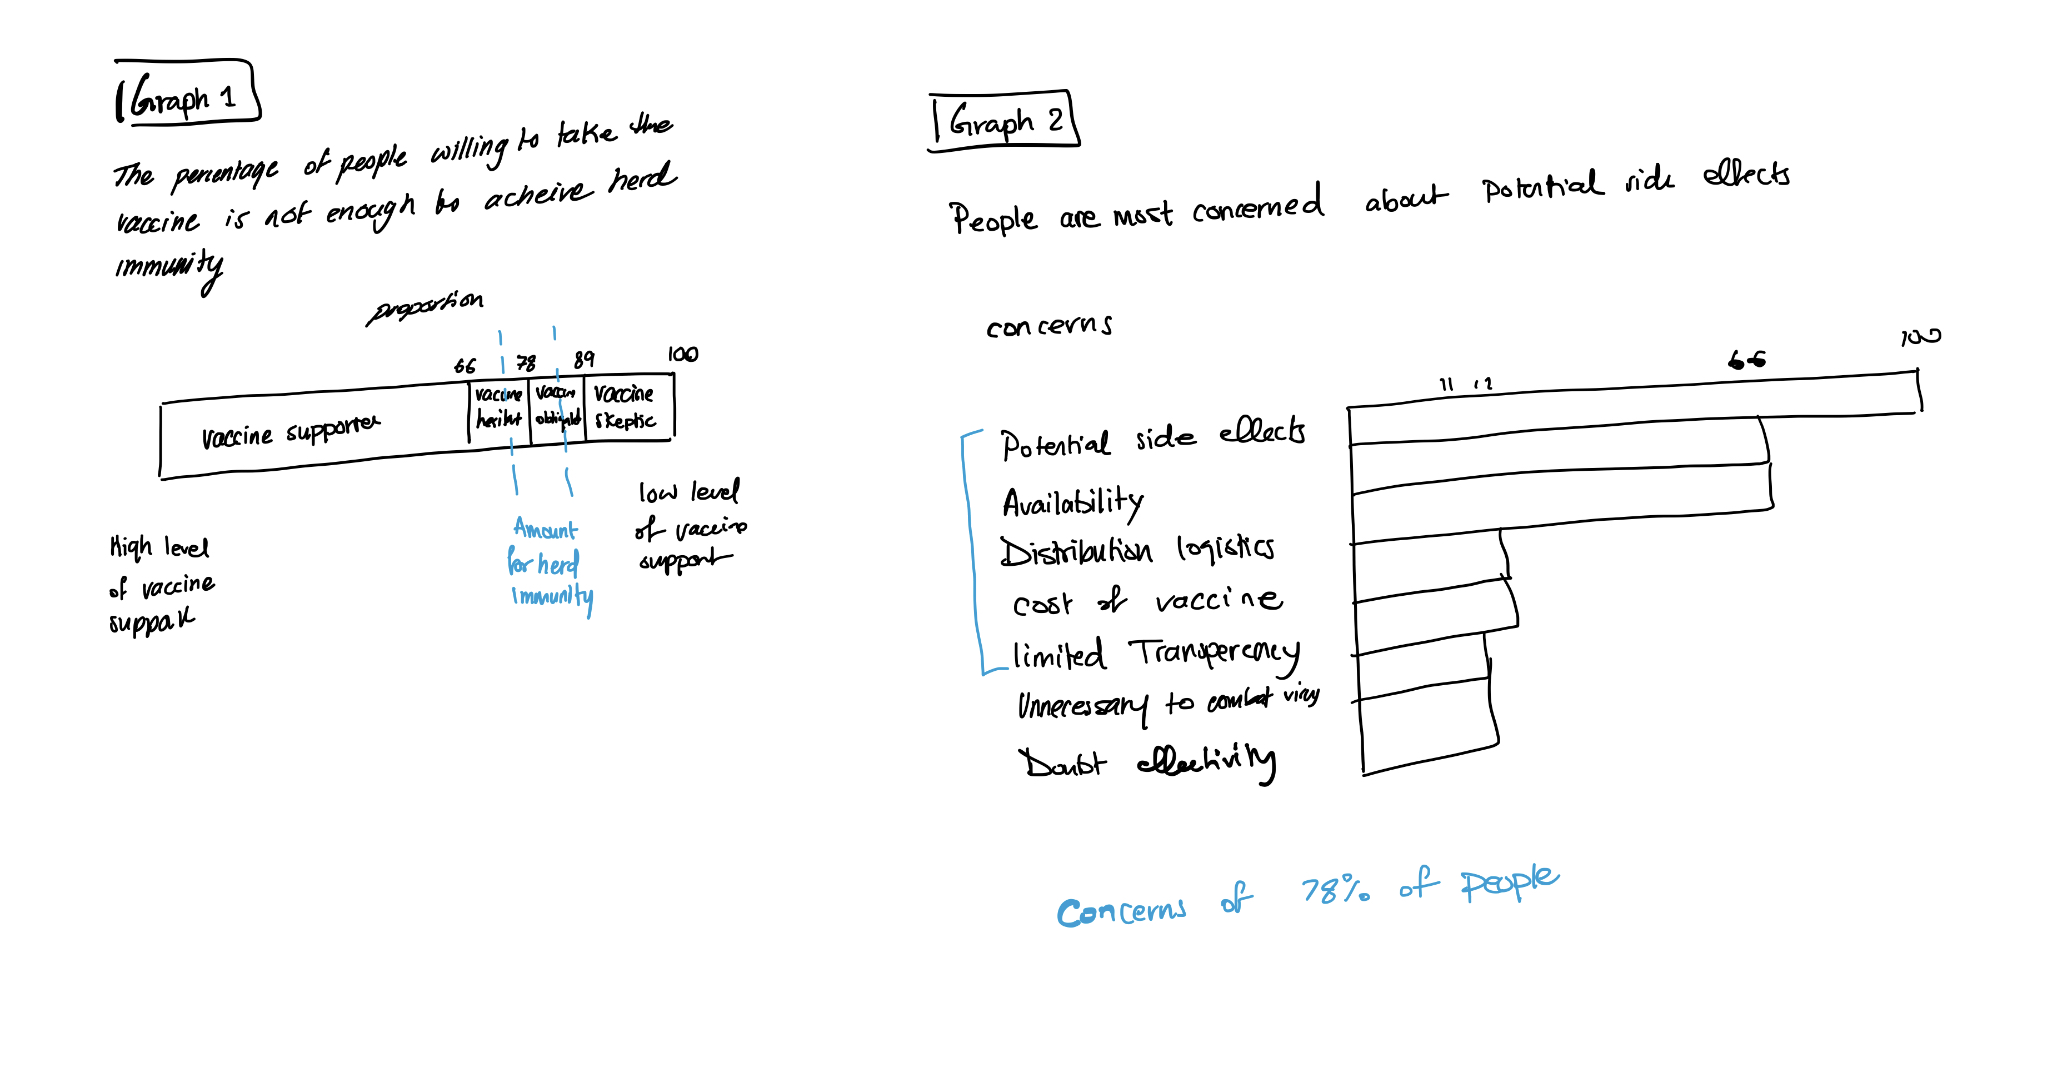 Graph 1
The percentage of people willing to take the
vaccine is not enough to acheive herd
immunity
proportion
66 78 89 100
vaccine supporter
vaccine
vaccine
vaccine
skeptic
High level
of vaccine
support
Amount
for herd
immunity
low level
of vaccine
support
Graph 2
People are most concerned about potential side effects
concerns
11 12 66 100
Potential side effects
Availability
Distribution logistics
cost of vaccine
limited Transperency
Unnecessary to combat virus
Doubt effectivity
Concerns of 78% of people